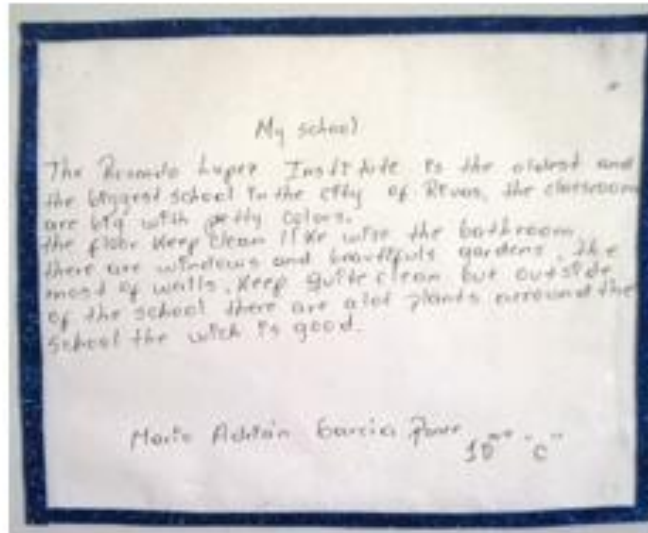 My school
The Rosendo Lopez Institute is the oldest and
the biggest school in the city of Rivas, the classroom
are big with pretty colors.
the floor keep clean like wise the bathroom
there are windows and beautifuls gardens. the
most of walls. Keep quite clean but outside
of the school there are alot plants arround the
school the wich is good.
Adrián Garcia
10 "C"